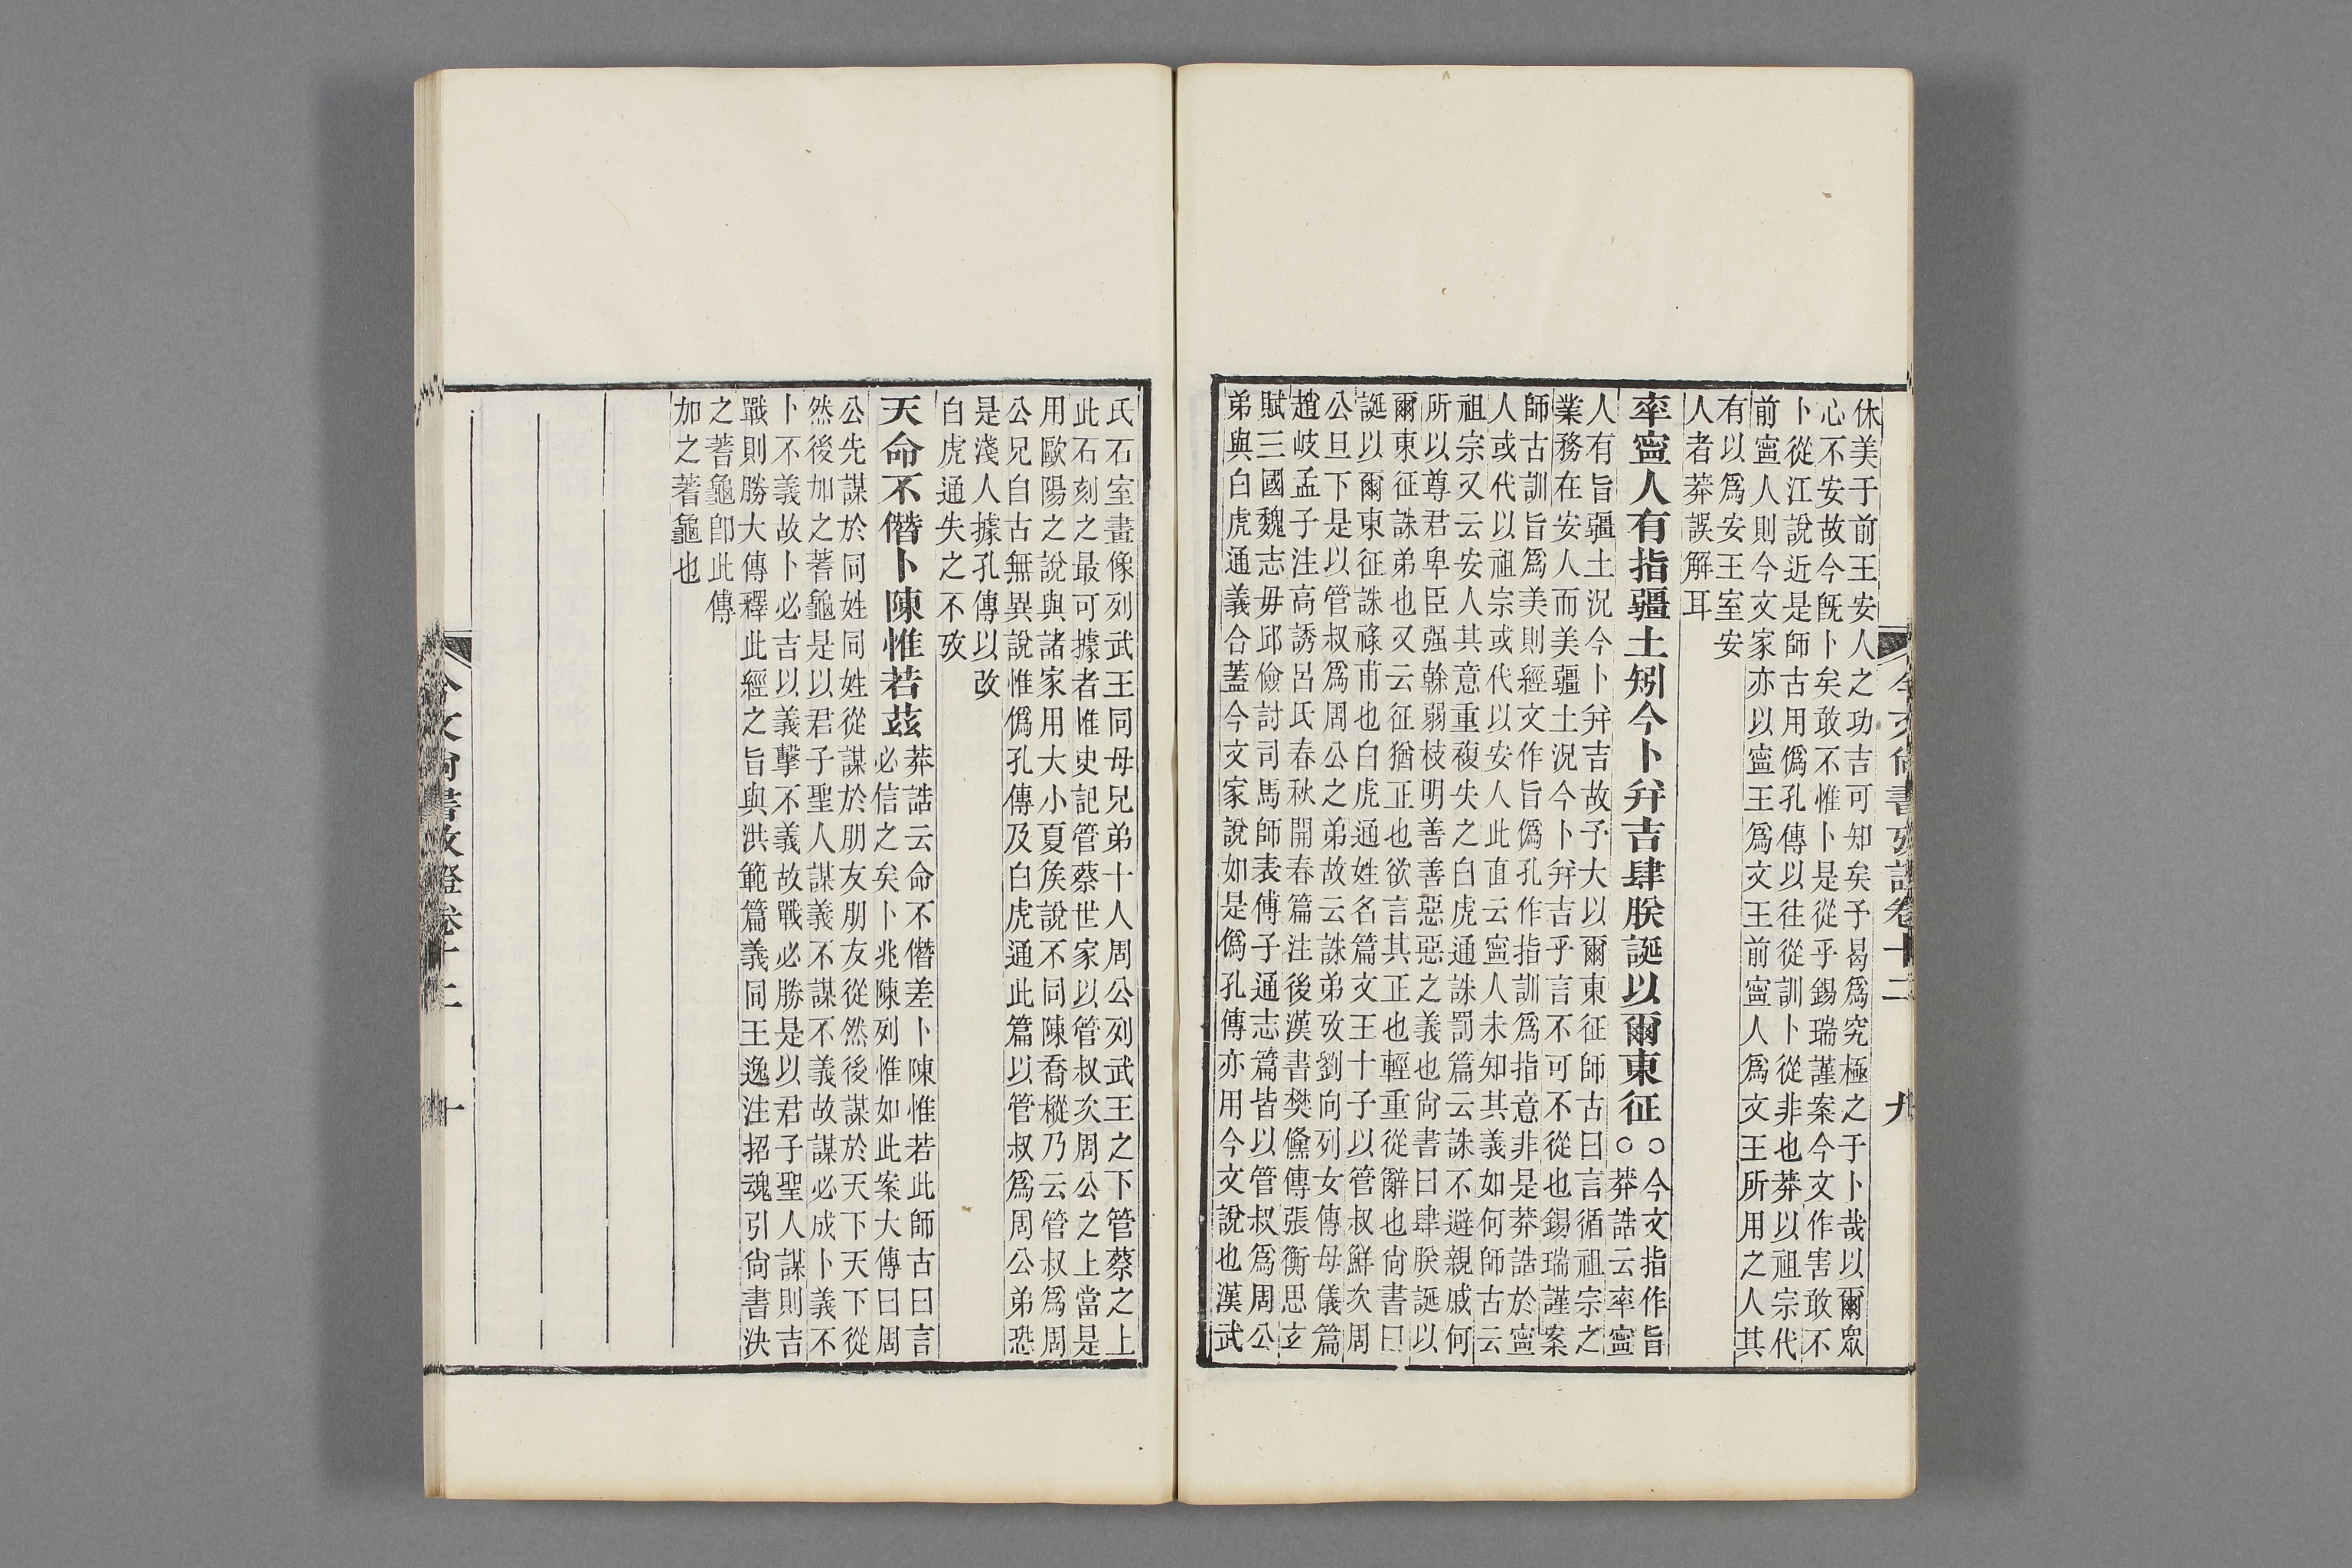 休美于前王安人之功吉可知矣予曷爲究極之于卜哉以爾眾
心不安故今旣卜矣敢不惟卜是從乎錫瑞謹案今文作害敢不
卜從江說近是師古用僞孔傳以往從訓卜從非也莽以祖宗代
前寧人則今文家亦以寧王爲文王前寧人爲文王所用之人其
有以爲安王室安
人者莽誤解耳
率寧人有指疆土矧今卜并吉肆朕誕以爾東征○今文指作旨
○莽誥云率寧
人有旨疆土況今卜并吉故予大以爾東征師古曰言循祖宗之
業務在安人而美疆土況今卜并吉乎言不可不從也錫瑞謹案
師古訓旨爲美則經文作旨僞孔作指訓爲指意非是莽誥於寧
人或代以祖宗或代以安人此直云寧人未知其義如何師古云
祖宗又云安人其意重複失之白虎通誅罰篇云誅不避親戚何
所以尊君卑臣强榦弱枝明善善惡惡之義也尙書曰肆朕誕以
爾東征誅弟也又云征猶正也欲言其正也輕重從辭也尙書曰
誕以爾東征誅祿甫也白虎通姓名篇文王十子以管叔鮮次周
公旦下是以管叔爲周公之弟故云誅弟攷劉向列女傳母儀篇
趙岐孟子注高誘呂氏春秋開春篇注後漢書樊儵傳張衡思玄
賦三國魏志毋邱儉討司馬師表傅子通志篇皆以管叔爲周公
弟與白虎通義合蓋今文家說如是僞孔傳亦用今文說也漢武
今文尙書攷證卷十二
九
氏石室畫像列武王同母兄弟十人周公列武王之下管蔡之上
此石刻之最可據者惟史記管蔡世家以管叔次周公之上當是
用歐陽之說與諸家用大小夏侯說不同陳喬樅乃云管叔爲周
公兄自古無異說惟僞孔傳及白虎通此篇以管叔爲周公弟恐
是淺人據孔傳以改
白虎通失之不攷
天命不僭卜陳惟若茲
莽誥云命不僭差卜陳惟若此師古曰言
必信之矣卜兆陳列惟如此案大傳曰周
公先謀於同姓同姓從謀於朋友朋友從然後謀於天下天下從
然後加之蓍龜是以君子聖人謀義不謀不義故謀必成卜義不
卜不義故卜必吉以義擊不義故戰必勝是以君子聖人謀則吉
戰則勝大傳釋此經之旨與洪範篇義同王逸注招魂引尙書決
之蓍龜卽此傳
加之蓍龜也
今文尙書攷證卷十二
十